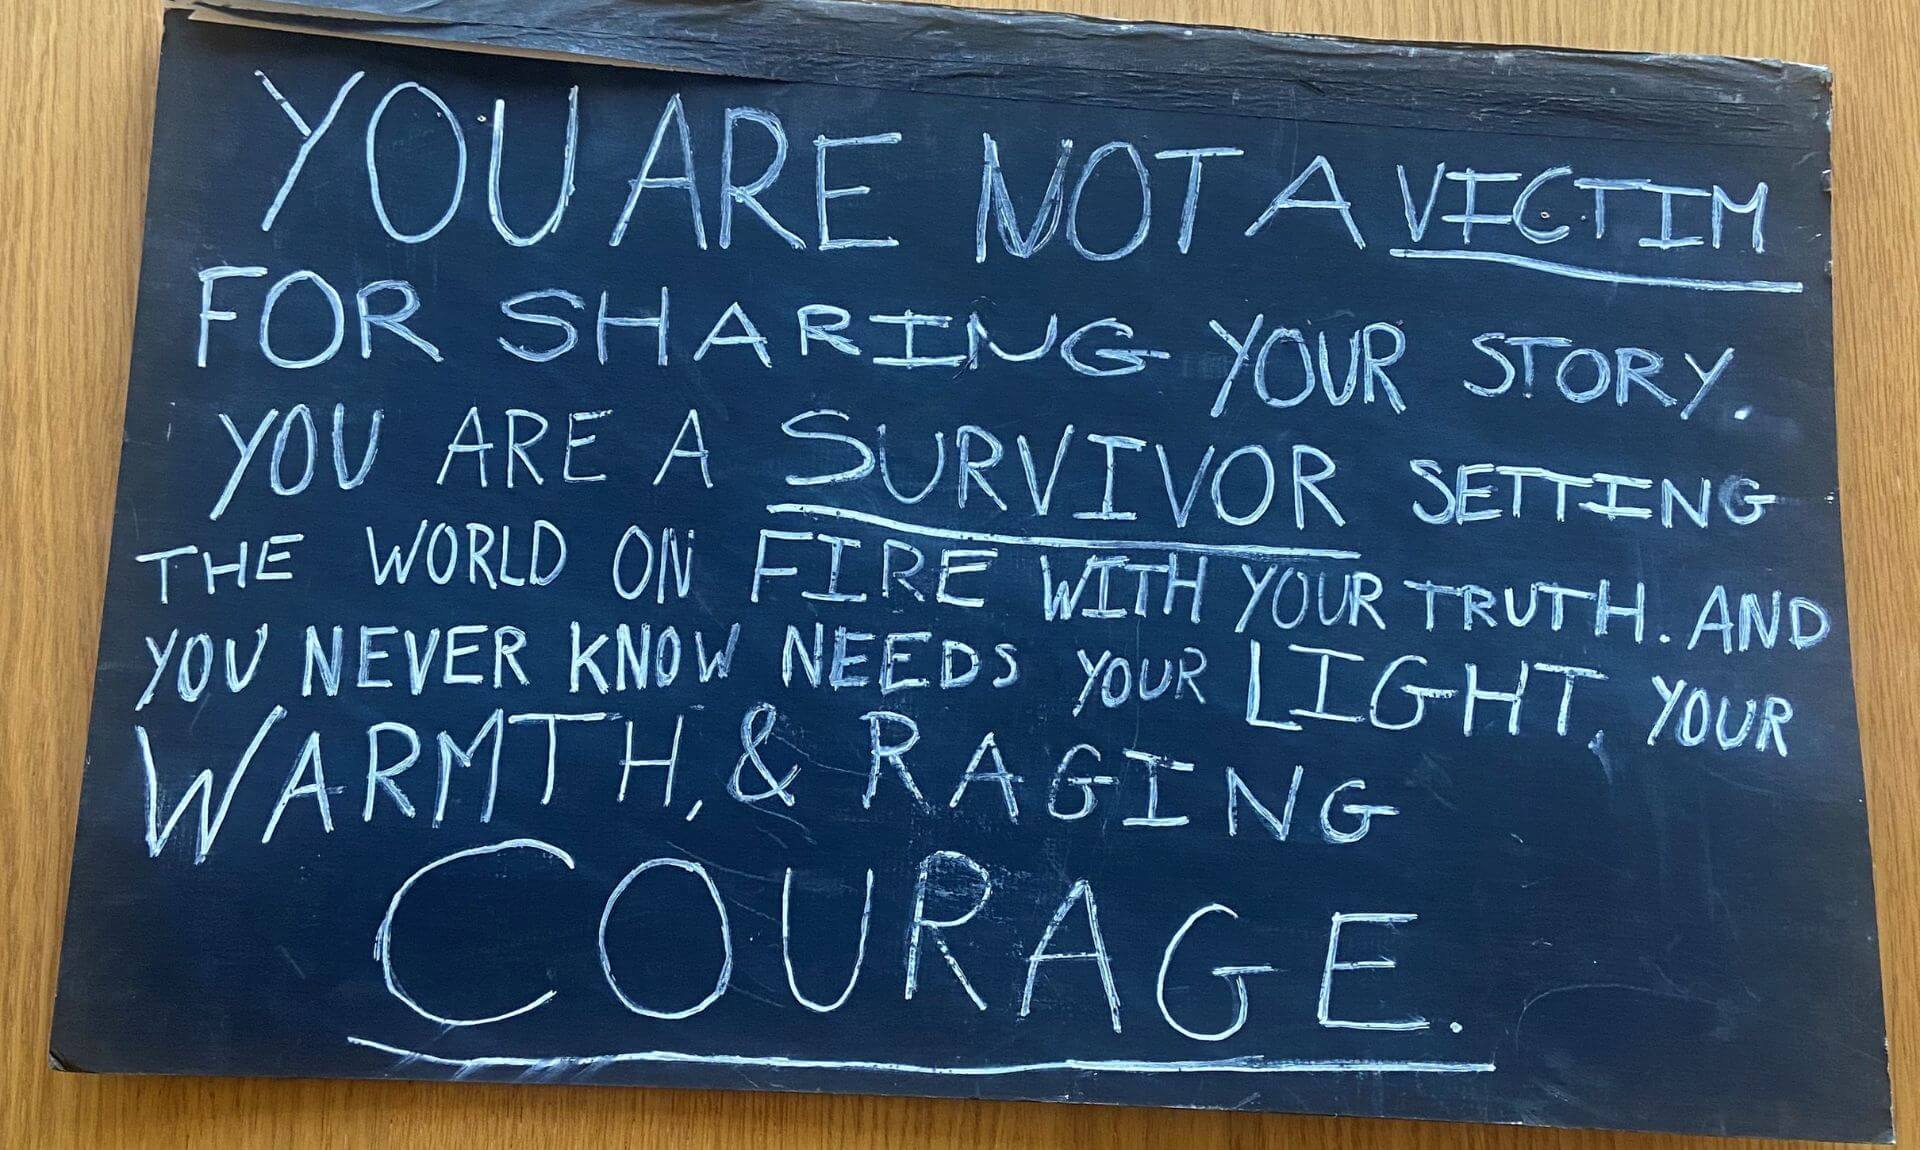 YOU ARE NOT A VICTIM
FOR SHARING YOUR STORY.
YOU ARE A SURVIVOR SETTING
THE WORLD ON FIRE WITH YOUR TRUTH. AND
YOU NEVER KNOW NEEDS YOUR LIGHT, YOUR
WARMTH, & RAGING
COURAGE.